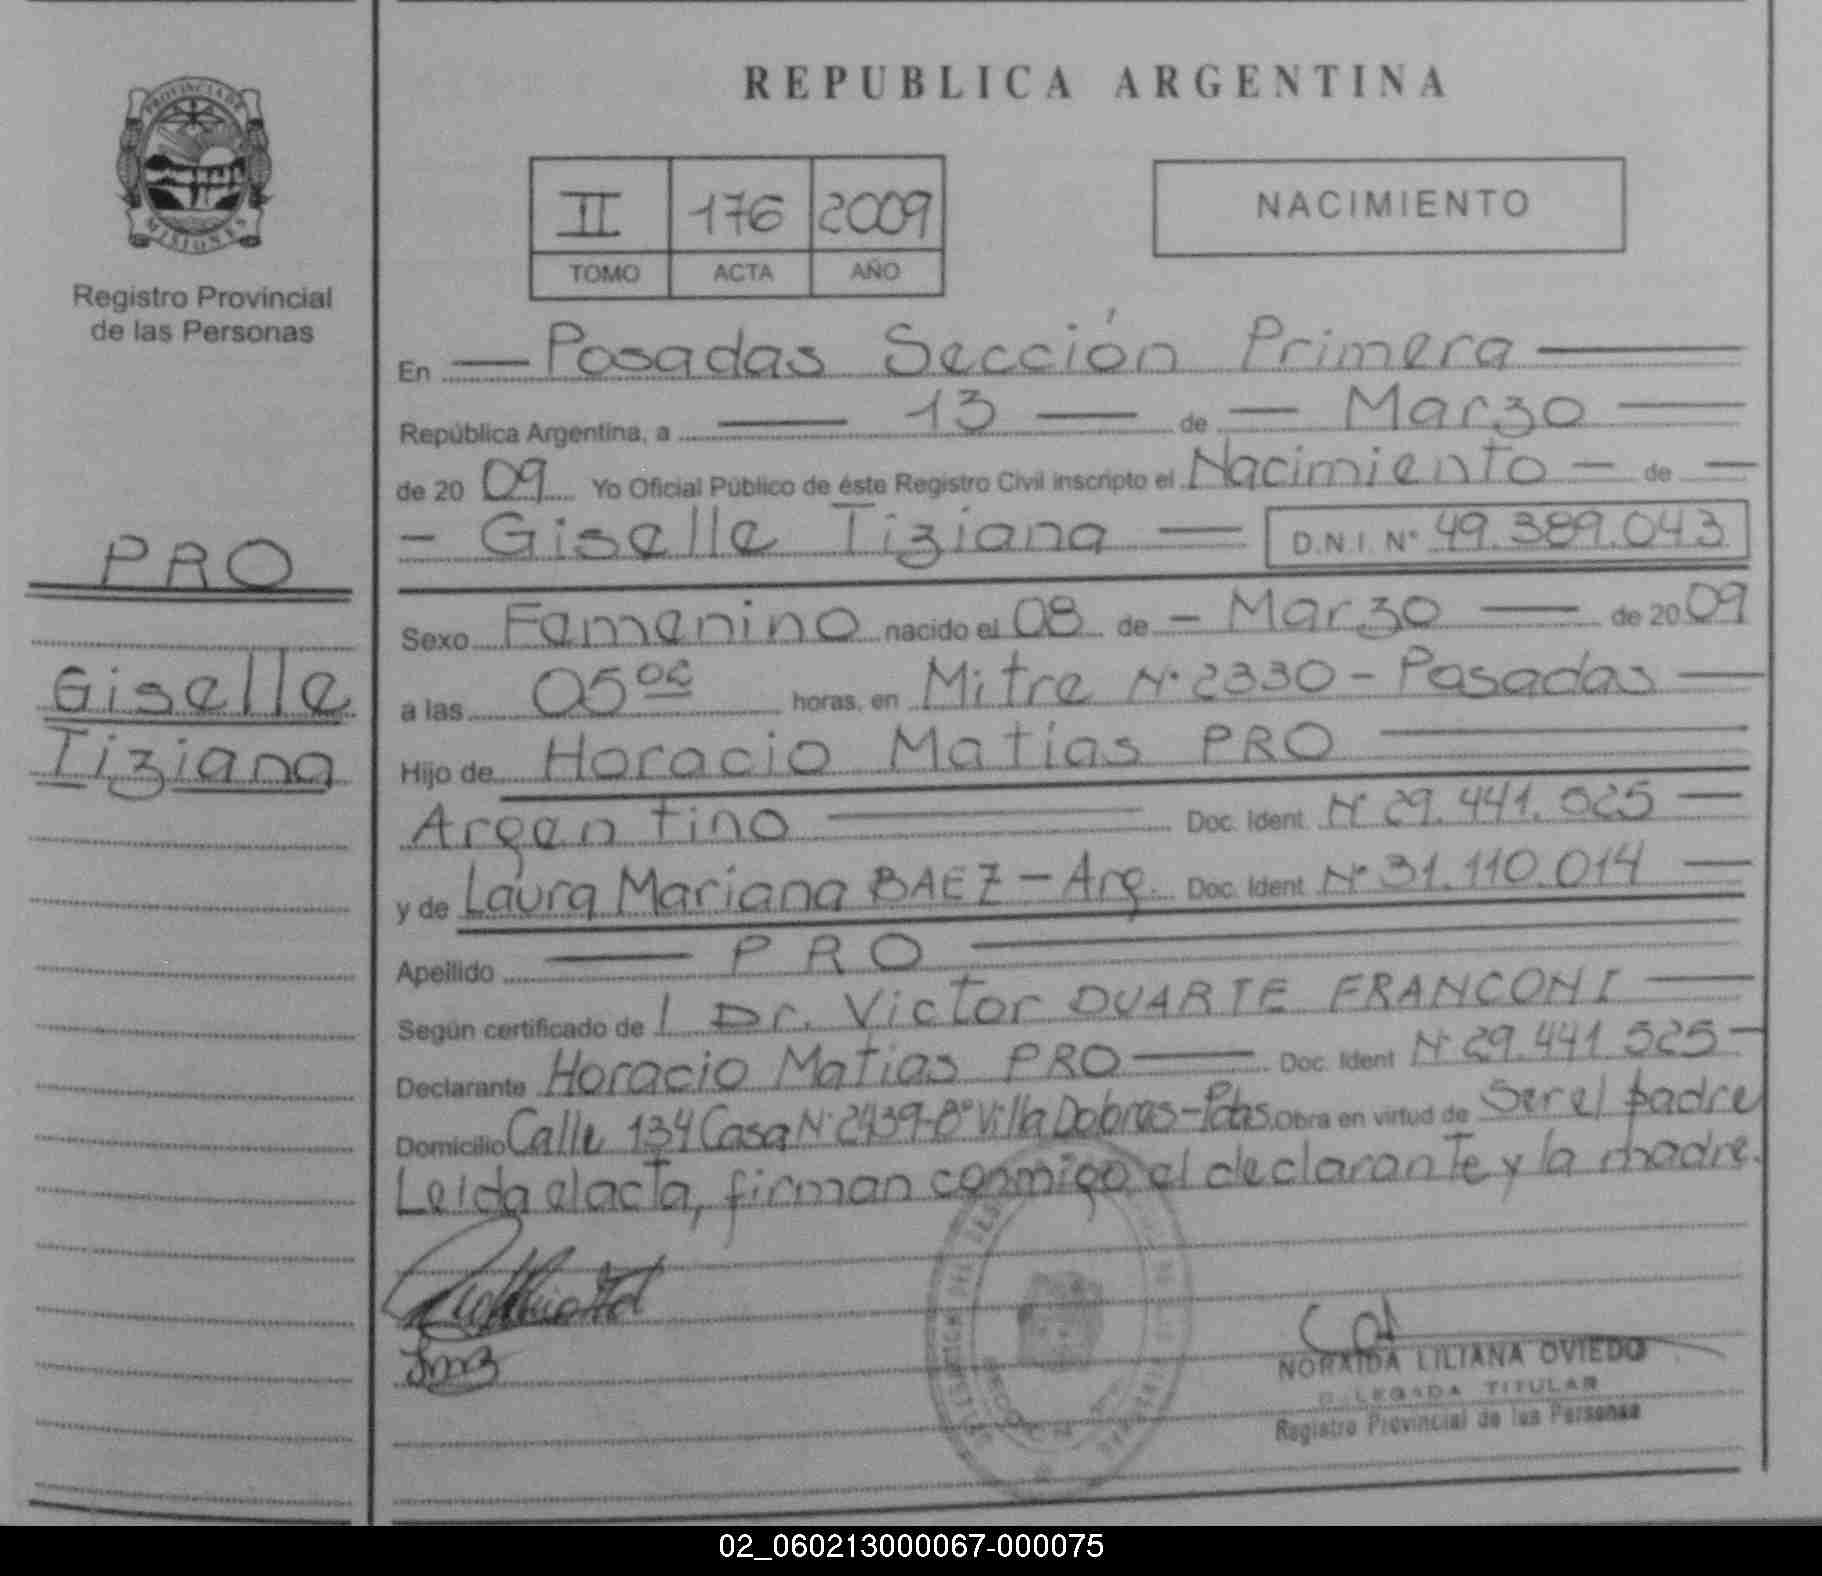 PROVINCIA DE
MISIONES
Registro Provincial
de las Personas
PRO
Giselle
Tiziana
REPUBLICA ARGENTINA
II 176 2009
TOMO ACTA AÑO
NACIMIENTO
En Posadas Sección Primera
República Argentina, a 13 de Marzo
de 2009 Yo Oficial Público de éste Registro Civil inscripto el Nacimiento de
Giselle Tiziana D.N.I. Nº 49.389.043
Sexo Femenino nacido el 08 de Marzo de 2009
a las 05 horas, en Mitre Nº 2330 - Posadas
Hijo de Horacio Matias PRO
Argentino Doc. Ident. Nº 29.441.525
y de Laura Mariana BAEZ - Arg. Doc. Ident. Nº 31.110.014
Apellido PRO
Según certificado de Dr. Victor DUARTE FRANCONI
Declarante Horacio Matias PRO Doc. Ident Nº 29.441.525
Domicilio Calle 134 Casa Nº 2439-Bº Villa Dobras-Pdas. Obra en virtud de Ser el padre
Leida el acta, firman conmigo el declarante y la madre.
NORAIDA LILIANA OVIEDO
DELEGADA TITULAR
Registro Provincial de las Personas
02_060213000067-000075